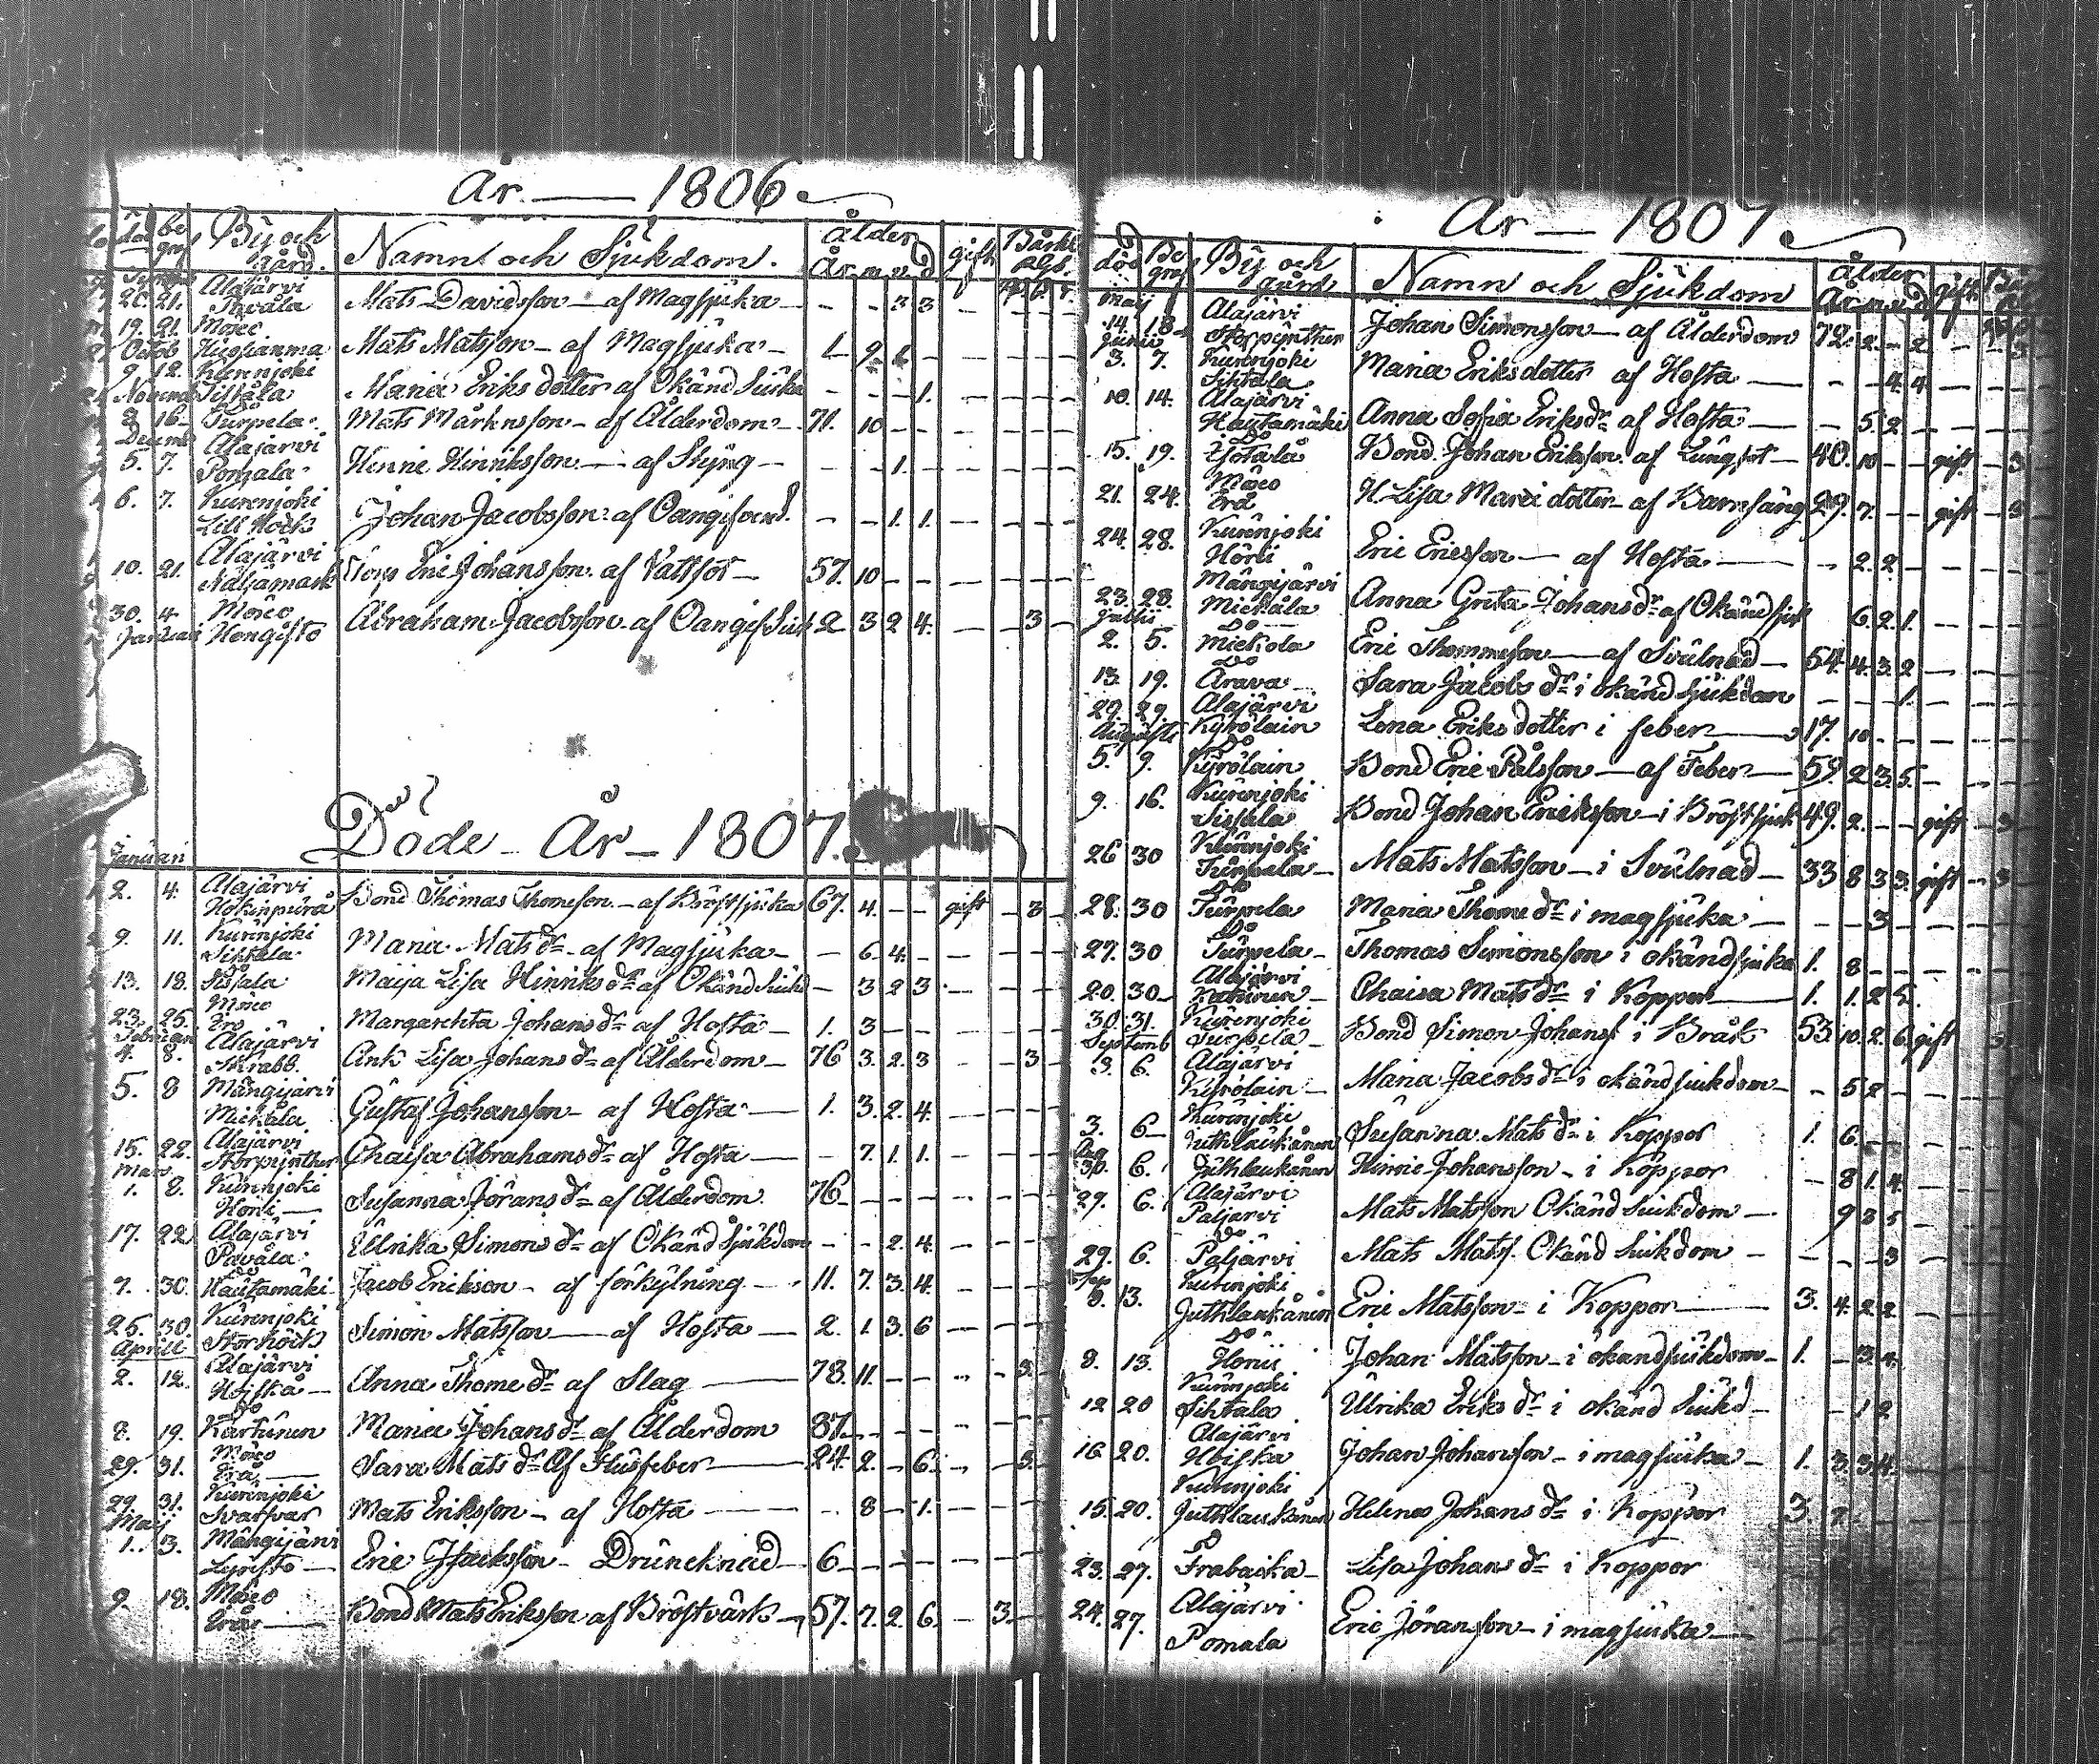 År. — 1806
död be graf Bÿ och Gård. Namn och Sjükdom. Ålder År. m. v. d. gift
20. 21. Alajärvi Pavåla Mats Davidsson — af Magsjüka — - - 3 3
19. 21. Möseo Mats Matsson — af Magsjüka — 1 9 1
Octob
9. 12. Kurenjoki Maria Eriks dotter af Okänd Siüka - - - 1.
Novemb
3 16 Do Turpela Mats Mårtensson — af Ålderdom — 71. 10
Decemb
5. 7. Alajärvi Pomala Henric Hinriksson — af Styng - - - 1.
6. 7. Kurenjoki Lill Höck Johan Jacobsson af Oangifven - - 1. 1.
10. 21. Alajärvi Eric Johansson af Vattsot — 57. 10
30. 4. Möseo Abraham Jacobsson af Oangif Siuk 2 3 2 4. 3
Januari Hengisto
Döde — År — 1807.
Januari
2. 4. Alajärvi Hokinpura Bond Thomas Thomsson — af Bröstsjüka 67. 4. gift 3
9. 11. Kurenjoki Sihtala Maria Mats dr af Magsjüka — 6 4.
13. 18. Do Sissala Maija Lisa Hinriks dr af Okänd Siükd — 3 2 3.
23. 25. Möseo Ero Margarehta Johans dr af Hosta — 1. 3
Februari
4. 8. Alajärvi Krabb. Ank Lisa Johans dr af Ålderdom — 76 3. 2. 3 3
5. 8 Mängijärvi Mickåla Gustaf Johansson — af Hosta — 1. 3. 2. 4.
15. 22. Alajärvi Storpynther Chaisa Abrahams dr af Hosta — 7. 1. 1.
Mars
1. 8. Kurenjoki Höni Susanna Jörans dr af Ålderdom 76
17. 22 Alajärvi Pavåla Ullrika Simons dr af Okänd Sjükdom - - 2. 4.
7. 30. Do Hautamäki Jacob Erikson — af förkylning — 11. 7. 3. 4.
25. 30. Kurenjoki Storhöck Simon Matsson — af Hosta — 2. 1 3. 6
Aprill
2. 12. Alajärvi Höiska Anna Thome dr af Slag — 78. 11. 3.
8. 19. Do Karturen Maria Johans dr af Ålderdom 87.
29. 31. Möseo Erä Sara Mats dr Af Hüsfeber — 24. 2. - 6. 3.
29. 31. Kurenjoki Svarfvar Mats Eriksson — af Hosta — 8 - 1.
Maij
1. 3. Mängijärvi Eric Isacksson — Drüncknad 6
9. 18. Möseo Bond Mats Eriksson af Bröstvärk — 57. 7. 2. 6. 3
År — 1807.
död Be graf Bÿ och gård Namn och Sjükdom Ålder År. m. v. d. gift
maij
14. 18 Alajärvi Storpÿnther Johan Simonsson — af Ålderdom 72. 2. - 2. 3
Junii
3. 7. Kurenjoki Sihtala Maria Eriks dotter af Hosta — - - 4. 4.
10. 14. Alajärvi Hautamäki Anna Sofia Eriks dr af Hosta — 5. 2.
15. 19. Do Bond. Johan Eriksson af Lüngsot — 40. 10 gift 3
21. 24. Möseo Erä H Lisa Marci dotter — af Barnsäng 29. 7. gift 3
24. 28. Kurenjoki Höni Eric Ericsson — af Hosta — 2. 2.
23. 28. Mängijärvi Mickåla Anna Greta Johans dr af Okänd sjuk 6. 2. 1.
Julii
2. 5. Do Mickola Eric Thommeson — af Svülnad — 54. 4. 3. 2
13. 19. Do Arava Sara Jacobs dr i okänd sjükdom - - - 1.
29. 29. Alajärvi Kÿrölain Lena Eriks dotter i feber — 17. 10
Augusti
5. 9. Do Kÿrölain Bond Eric Pålsson — af Feber — 59 2 3 5.
9. 16. Kurenjoki Sissala Bond Johan Eriksson — i Bröstsjuk 49. 2. gift 3
26 30 Kurenjoki Turpela Mats Matsson — i Svülnad — 33 8 3 3. gift 3
28. 30 Do Turpela Maria Thome dr i magsjüka — - - 3
27. 30 Do Turpela Thomas Simonsson i okänd sjuka 1. 8
20. 30 Alajärvi Chaisa Mats dr i Koppor — 1. 1. 2 5.
30. 31. Kurenjoki Turpela Bond Simon Johanss i Bråk 53. 10. 2. 6. gift 3
Septemb
3. 6. Alajärvi Kÿrölain Maria Jacobs dr i okänd siukdom — 5 2
3. 6 Kurenjoki Juthlaukånen Susanna Mats dr i Koppor 1. 6.
Aug
30. 6. Juthlaukånen Hinric Johansson — i Koppor 8 1. 4.
29. 6. Alajärvi Paljarvi Mats Matsson Okänd Siukdom — 9 3 5
29. 6. Do Paljärvi Mats Matss. Okänd Siukdom - - - 3
Sep
8. 13. Kurenjoki Juthlaukånen Eric Matsson — i Koppor — 3. 4. 2 2
8. 13. Do Hönii Johan Matsson — i okänd sjükdom — 1. - 3. 4.
12 20 Kurenjoki Sihtala Ullrika Eriks dr i okänd Siükd — 1 2
16 20. Alajärvi Höiska Johan Johansson — i magsjuka — 1. 3. 3. 4.
15. 20. Kurenjoki Juthlaukånen Helena Johans dr i Koppor 3. 7.
23. 27. Do Frabacka Lisa Johans dr i Koppor
24. 27. Alajärvi Pomala Eric Jöransson — i magsjuka